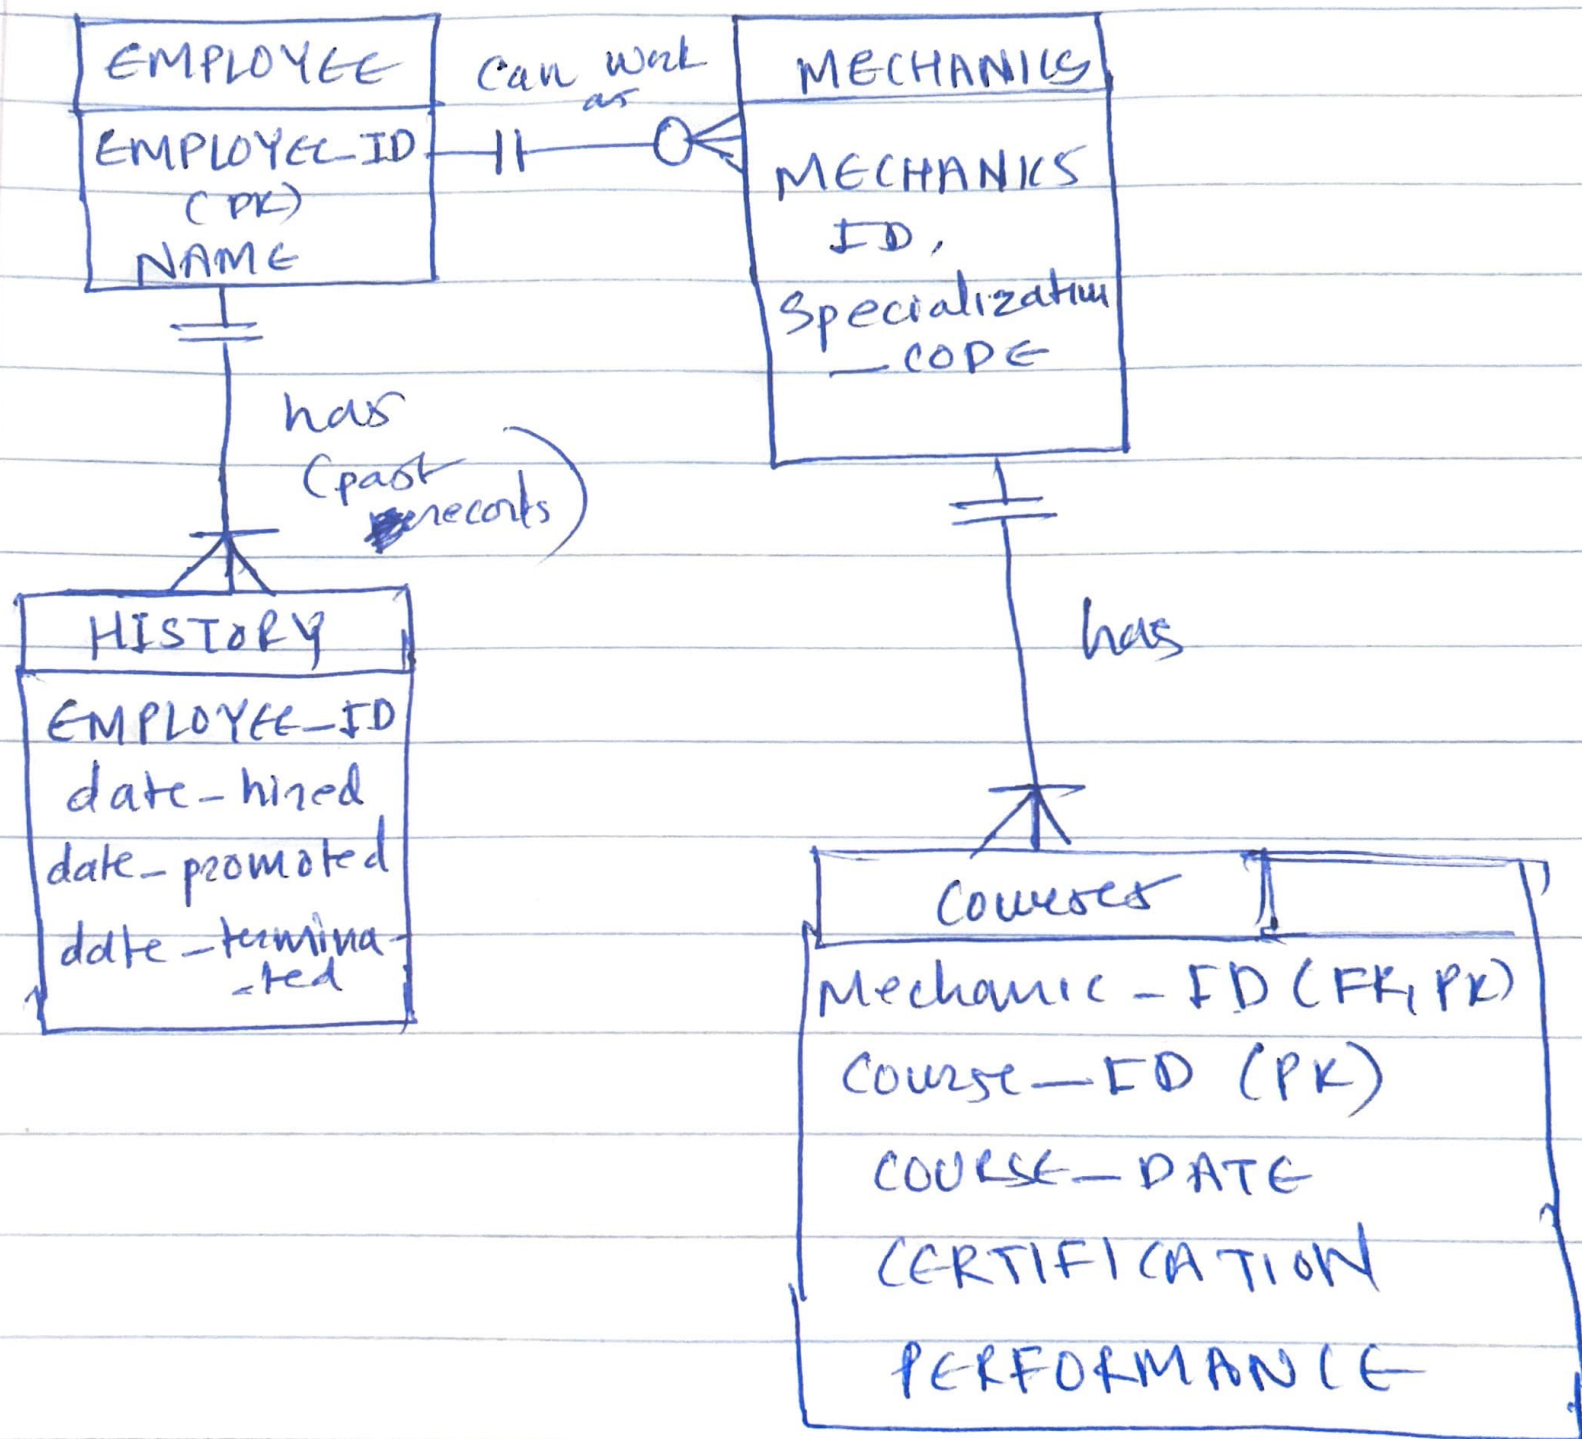 EMPLOYEE
EMPLOYEE_ID
(PK)
NAME
can work
as
MECHANICS
MECHANICS
ID,
Specialization
_CODE
has
(past
records)
HISTORY
EMPLOYEE_ID
date_hired
date_promoted
date_termina
-ted
has
Courses
Mechanic_ID (FK, PK)
Course_ID (PK)
COURSE_DATE
CERTIFICATION
PERFORMANCE